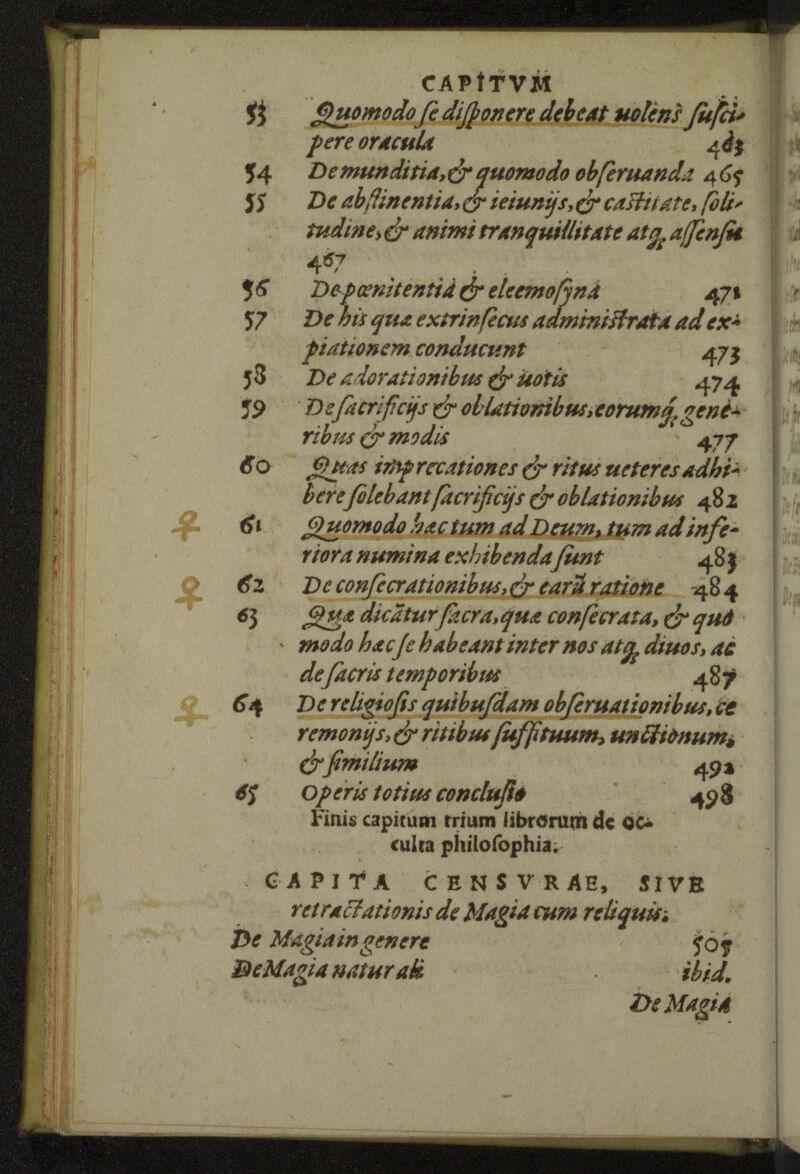 CAPITVM
53 Quomodo se disponere debeat uolens susci-
pere oracula 463
54 De munditia, & quomodo obseruanda 465
55 De abstinentia, & ieiunijs, & castitate, soli-
tudine, & animi tranquillitate atq; assensu
467
56 De pœnitentia & eleemosyna 471
57 De his quæ extrinsecus administrata ad ex-
piationem conducunt 473
58 De adorationibus & uotis 474
59 De sacrificijs & oblationibus, eorumq; gene-
ribus & modis 477
60 Quas imprecationes & ritus ueteres adhi-
bere solebant sacrificijs & oblationibus 482
61 Quomodo hæc tum ad Deum, tum ad infe-
riora numina exhibenda sunt 483
62 De consecrationibus, & earū ratione 484
63 Quæ dicātur sacra, quæ consecrata, & quo
modo hæc se habeant inter nos atq; diuos, ac
de sacris temporibus 487
64 De religiosis quibusdam obseruationibus, ce
remonijs, & ritibus suffituum, unctionum,
& similium 492
65 Operis totius conclusio 498
Finis capitum trium librorum de oc-
culta philosophia.
CAPITA CENSVRAE, SIVE
retractationis de Magia cum reliquis.
De Magia in genere 505
De Magia naturali ibid.
De Magia